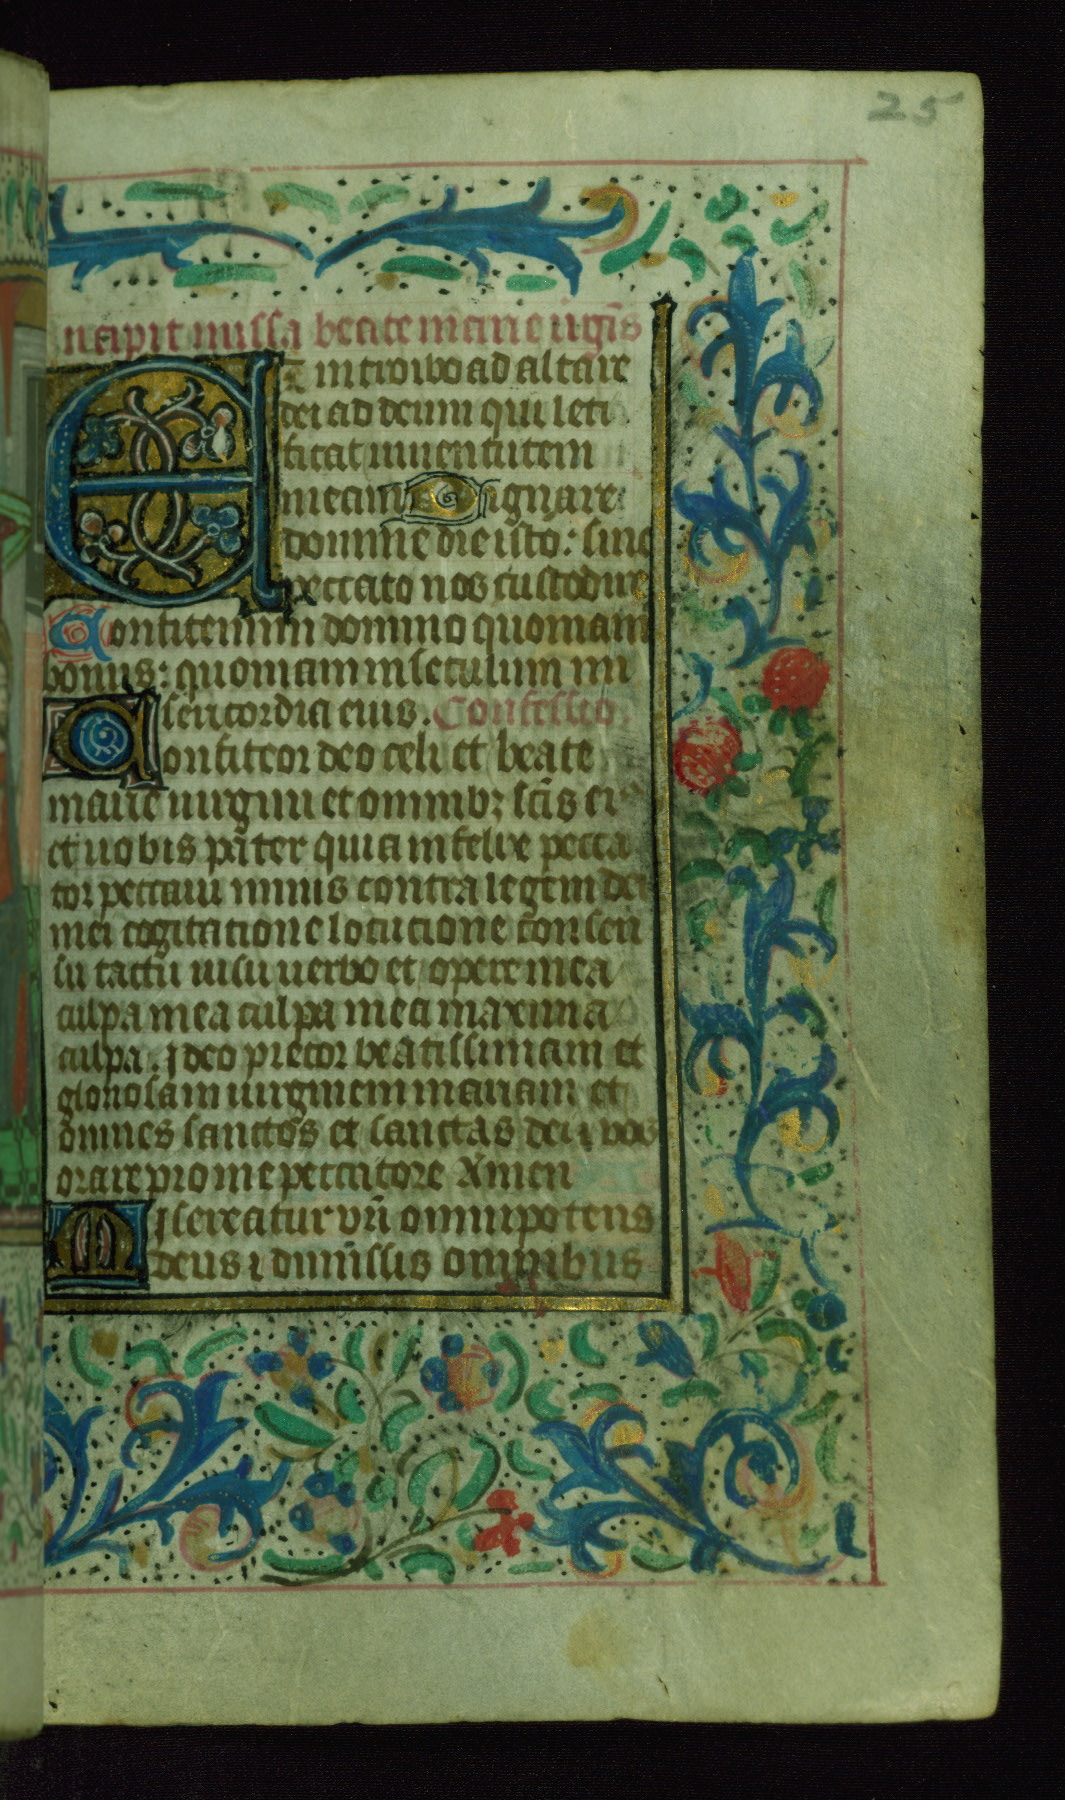 25
ncipit missa beate marie u̇gĩs
Et introibo ad altare
dei ad deum qui leti
ficat iuuentutem
meam Dignare
domine die isto: sine
peccato nos custodire
Confitemini domino quoniam
bonus: quoniam in seculum mi
sericordia eius. Confessio.
Confiteor deo celi et beate
marie uirgini et omnibꝫ scĩs ei
et uobis pater quia infelix pecca
tor peccaui nimis contra legem dei
mei cogitatione locucione consen
su tactu uisu uerbo et opere mea
culpa mea culpa mea maxima
culpa. Ideo precor beatissimam et
gloriosam uirginem mariam et
omnes sanctos et sanctas dei ⁊ uos
orare pro me peccatore Amen
Misereatur vr̃i omnipotens
deus ⁊ dimissis omnibus